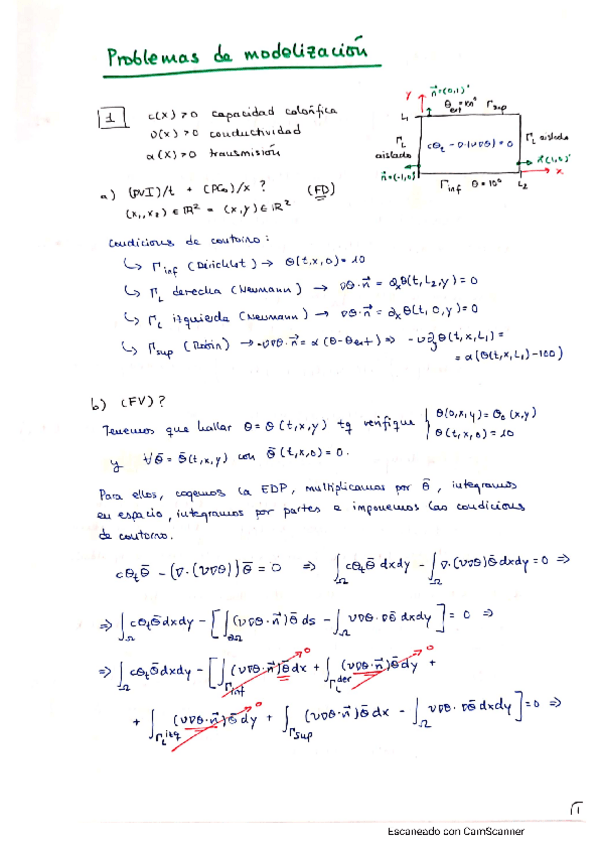 Problemas de modelización
1 c(x) > 0 capacidad calorífica
ν(x) > 0 conductividad
α(x) > 0 transmisión
Y n⃗=(0,1)ᵗ
θext=100° Γsup
L₁
Γ_L aislado
cθt - ∇·(ν∇θ) = 0
Γ_L aislado
n⃗=(-1,0)ᵗ
n⃗(1,0)ᵗ
x
Γinf θ=10° L₂
a) (PVI)/t + (PCo)/x ? (FD)
(x₁,x₂) ∈ ℝ² = (x,y) ∈ ℝ²
Condiciones de contorno:
↳ Γinf (Dirichlet) → θ(t,x,0) = 10
↳ Γ_L derecha (Neumann) → ∇θ·n⃗ = ∂xθ(t,L₂,y) = 0
↳ Γ_L izquierda (Neumann) → ∇θ·n⃗ = ∂xθ(t,0,y) = 0
↳ Γsup (Robin) → -ν∇θ·n⃗ = α(θ-θext) ⇒ -ν∂yθ(t,x,L₁) =
= α(θ(t,x,L₁)-100)
b) (FV)?
Tenemos que hallar θ = θ(t,x,y) tq verifique { θ(0,x,y) = θ₀(x,y)
θ(t,x,0) = 10
y ∀θ̄ = θ̄(t,x,y) con θ̄(t,x,0) = 0.
Para ellos, cogemos la EDP, multiplicamos por θ̄, integramos
en espacio, integramos por partes e imponemos las condiciones
de contorno.
cθtθ̄ - (∇·(ν∇θ))θ̄ = 0 ⇒ ∫Ω cθtθ̄ dxdy - ∫Ω ∇·(ν∇θ)θ̄ dxdy = 0 ⇒
⇒ ∫Ω cθtθ̄ dxdy - [∫∂Ω (ν∇θ·n⃗)θ̄ ds - ∫Ω ν∇θ·∇θ̄ dxdy] = 0 ⇒
⇒ ∫Ω cθtθ̄ dxdy - [∫Γinf (ν∇θ·n⃗)θ̄ dx 0 + ∫Γ_L der (ν∇θ·n⃗)θ̄ dy 0 +
+ ∫Γ_L izq (ν∇θ·n⃗)θ̄ dy 0 + ∫Γsup (ν∇θ·n⃗)θ̄ dx - ∫Ω ν∇θ·∇θ̄ dxdy] = 0 ⇒
1
Escaneado con CamScanner